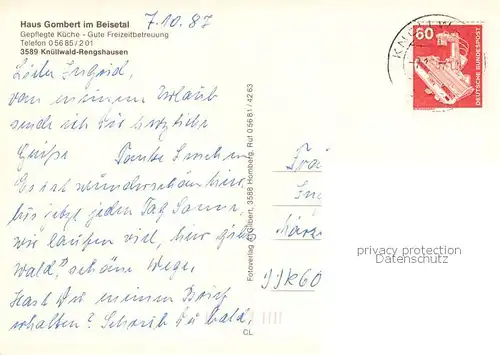 Haus Gombert im Beisetal
Gepflegte Küche - Gute Freizeitbetreuung
Telefon 0 56 85 / 2 01
3589 Knüllwald-Rengshausen
7.10.87
Liebe Ingrid,
von meinem Urlaub
sende ich dir herzliche
Grüße
Es ist wunderschön hier
bis jetzt jeden Tag Sonne
wir laufen viel, hier gibts
Wald, schöne Wege,
Hast Du meinen Brief
erhalten? Schreib Du bald,
Fotoverlag A. Gilbert, 3588 Homberg, Ruf 0 56 81 / 42 63
CL
60
DEUTSCHE BUNDESPOST
privacy protection
Datenschutz